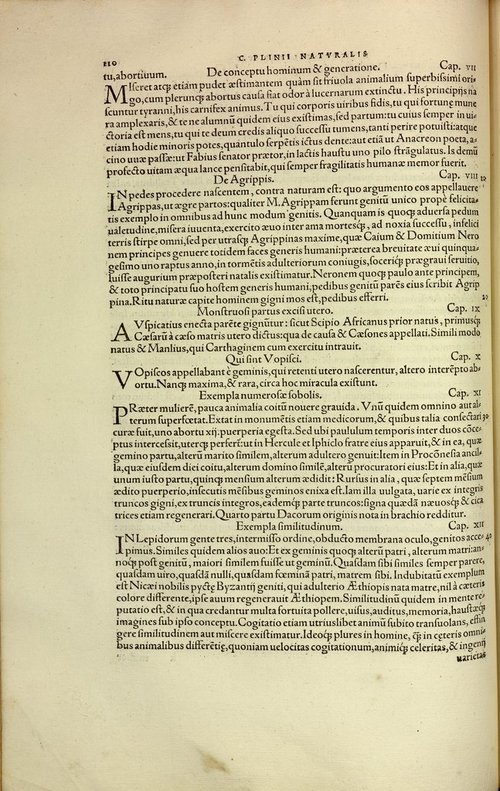 110 C. PLINII NATVRALIS
tu, abortiuum. De conceptu hominum & generatione. Cap. VII
MIseret atq; etiam pudet æstimantem quàm sit friuola animalium superbissimi ori-
go, cum plerunq; abortus causa fiat odor à lucernarum extinctu. His principijs na
scuntur tyranni, his carnifex animus. Tu qui corporis uiribus fidis, tu qui fortunę mune
ra amplexaris, & te ne alumnũ quidem eius existimas, sed partum: tu cuius semper in ui-
ctoria est mens, tu qui te deum credis aliquo successu tumens, tanti perire potuisti: atque
etiam hodie minoris potes, quantulo serpẽtis ictus dente: aut etiã ut Anacreon poeta, a-
cino uuæ passæ: ut Fabius senator prætor, in lactis haustu uno pilo strãgulatus. Is demũ
profecto uitam æqua lance pensitabit, qui semper fragilitatis humanæ memor fuerit.
De Agrippis. Cap. VIII
IN pedes procedere nascentem, contra naturam est: quo argumento eos appellauere
Agrippas, ut ægre partos: qualiter M. Agrippam ferunt genitũ unico propè felicita-
tis exemplo in omnibus ad hunc modum genitis. Quanquam is quoq; aduersa pedum
ualetudine, misera iuuenta, exercito æuo inter arma mortesq;, ad noxia successu, infelici
terris stirpe omni, sed per utrasq; Agrippinas maxime, quæ Caium & Domitium Nero
nem principes genuere totidem faces generis humani: præterea breuitate æui quinqua-
gesimo uno raptus anno, in tormẽtis adulteriorum coniugis, soceriq; prægraui seruitio,
luisse augurium præposteri natalis existimatur. Neronem quoq; paulo ante principem,
& toto principatu suo hostem generis humani, pedibus genitũ parẽs eius scribit Agrip
pina. Ritu naturæ capite hominem gigni mos est, pedibus efferri. 20
Monstruosi partus excisi utero. Cap. IX
AVspicatius enecta parẽte gignũtur: sicut Scipio Africanus prior natus, primusq;
Cæsarũ à cæso matris utero dictus: qua de causa & Cæsones appellati. Simili modo
natus & Manlius, qui Carthaginem cum exercitu intrauit.
Qui sint Vopisci. Cap. X
VOpiscos appellabant è geminis, qui retenti utero nascerentur, altero interẽpto ab-
ortu. Nanq; maxima, & rara, circa hoc miracula existunt.
Exempla numerosæ sobolis. Cap. XI
PRæter mulierẽ, pauca animalia coitũ nouere grauida. Vnũ quidem omnino aut al-
terum superfœtat. Extat in monumẽtis etiam medicorum, & quibus talia consectari 30
curæ fuit, uno abortu xij. puerperia egesta. Sed ubi paululum temporis inter duos cõce-
ptus intercessit, uterq; perfert: ut in Hercule et Iphiclo fratre eius apparuit, & in ea, quæ
gemino partu, alterũ marito similem, alterum adultero genuit: Item in Procõnesia ancil-
la, quæ eiusdem diei coitu, alterum domino similẽ, alterũ procuratori eius: Et in alia, quæ
unum iusto partu, quinq; mensium alterum ædidit: Rursus in alia, quæ septem mẽsium
ædito puerperio, insecutis mẽsibus geminos enixa est. Iam illa uulgata, uarie ex integris
truncos gigni, ex truncis integros, eademq; parte truncos: signa quædã næuosq; & cica
trices etiam regenerari. Quarto partu Dacorum originis nota in brachio redditur.
Exempla similitudinum. Cap. XII
IN Lepidorum gente tres, intermisso ordine, obducto membrana oculo, genitos acce 40
pimus. Similes quidem alios auo: Et ex geminis quoq; alterũ patri, alterum matri: an-
noq; post genitũ, maiori similem fuisse ut geminũ. Quasdam sibi similes semper parere,
quasdam uiro, quasdã nulli, quasdam fœminã patri, marem sibi. Indubitatũ exemplum
est Nicæi nobilis pyctę Byzantij geniti, qui adulterio Æthiopis nata matre, nil à cæteris
colore differente, ipse auum regenerauit Æthiopem. Similitudinũ quidem in mente re-
putatio est, & in qua credantur multa fortuita pollere, uisus, auditus, memoria, haustæq;
imagines sub ipso conceptu. Cogitatio etiam utriuslibet animũ subito transuolans, effin
gere similitudinem aut miscere existimatur. Ideoq; plures in homine, q̃; in cęteris omni-
bus animalibus differẽtię, quoniam uelocitas cogitationum, animiq; celeritas, & ingenij
uarietas